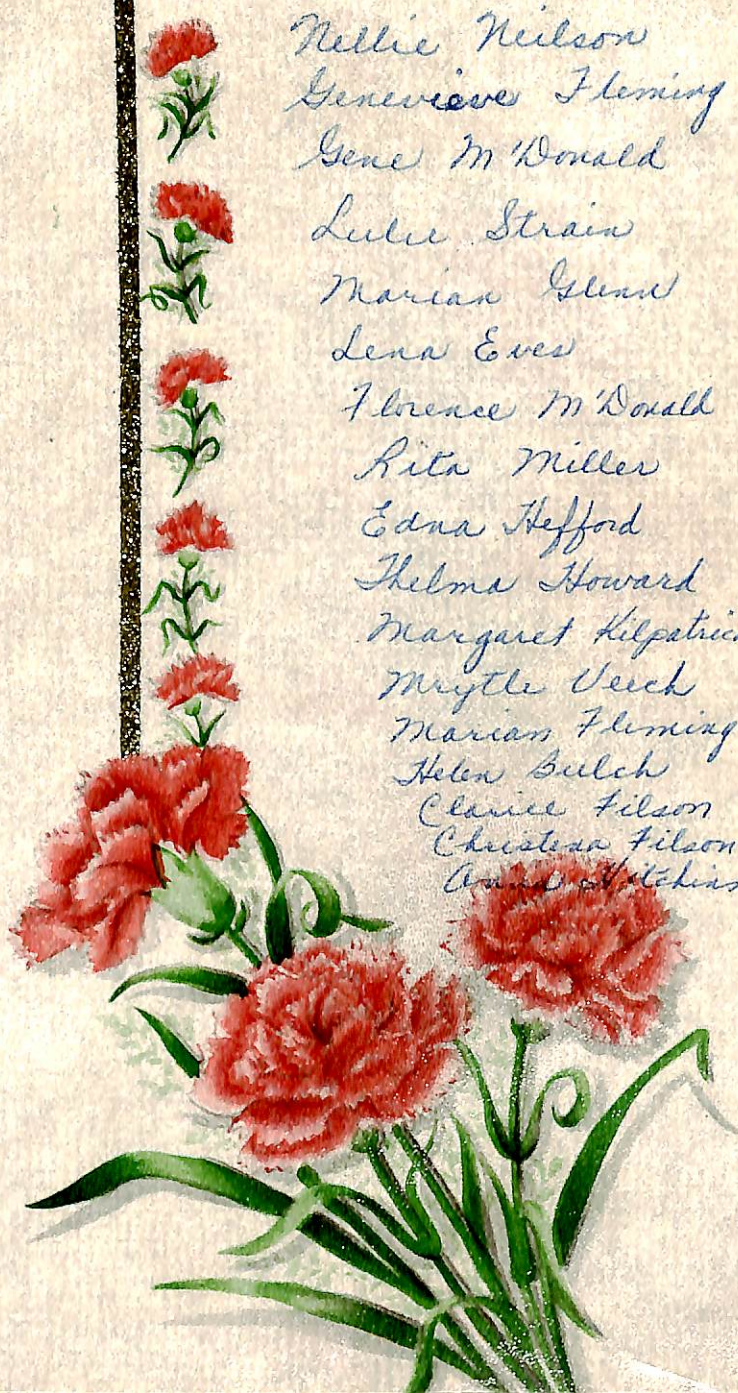 Nellie Neilson
Genevieve Fleming
Gene M'Donald
Lulu Strain
Marian Glenn
Lena Eves
Florence M'Donald
Rita Miller
Edna Hefford
Thelma Howard
Margaret Kilpatric
Mrytle Veech
Marian Fleming
Helen Bulch
Clarice Filson
Christena Filson
Anna Hitchins